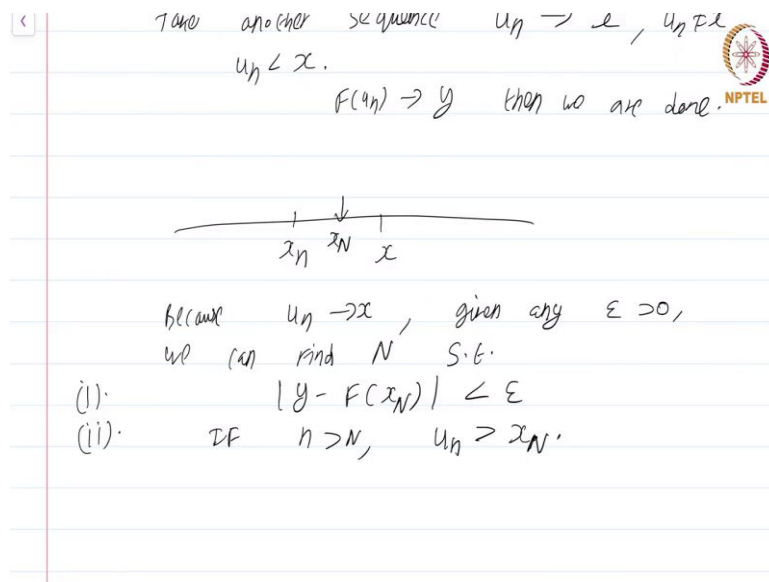 Take another sequence un → x, un ≠ x
un < x.
F(un) → y then we are done.
NPTEL
xn xN x
Because un → x, given any ε > 0,
we can find N s.t.
(i). |y - F(xN)| < ε
(ii). If n > N, un > xN.